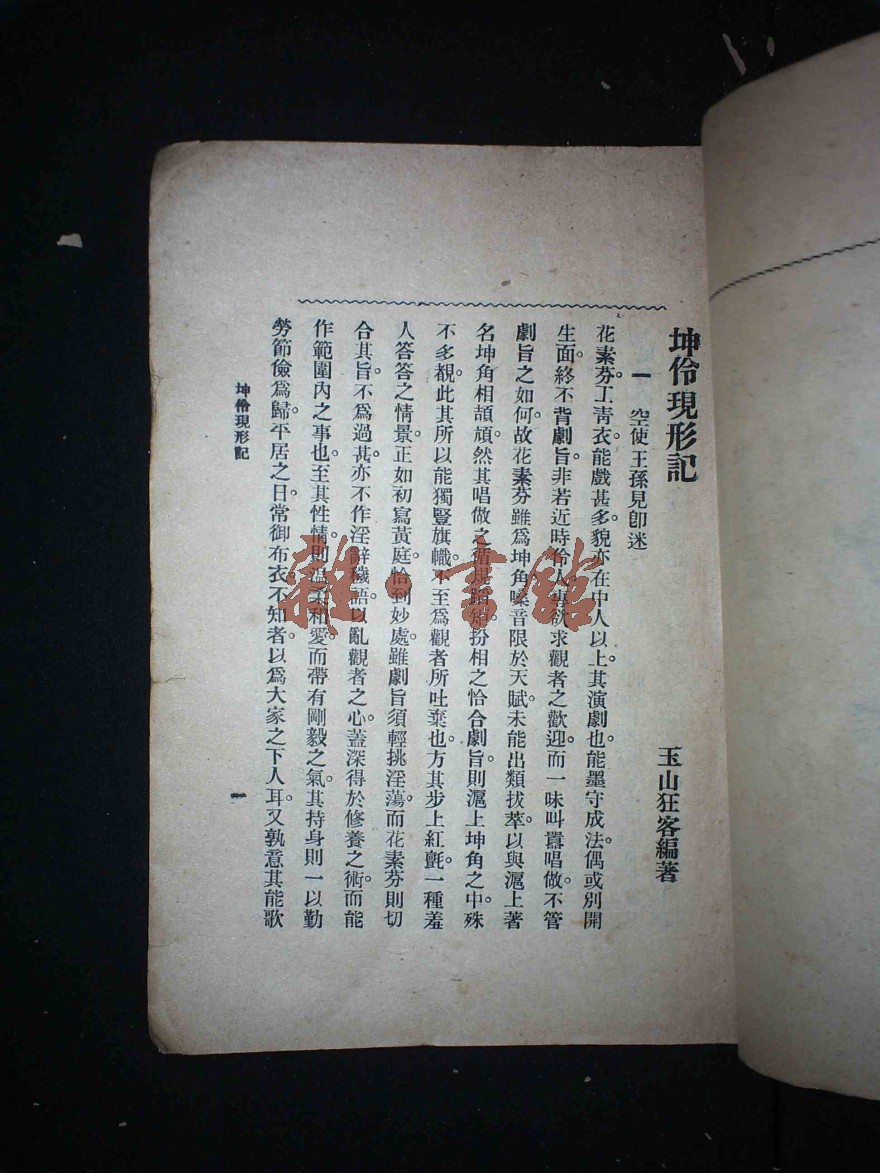 坤伶現形記
玉山狂客編著
一　空使王孫見卽迷
花素芬。工靑衣。能戲甚多。貌亦在中人以上。其演劇也。能墨守成法。偶或別開
生面。終不背劇旨。非若近時伶人專欲求觀者之歡迎。而一味叫囂唱做。不管
劇旨之如何。故花素芬雖爲坤角。嗓音限於天賦。未能出類拔萃。以與滬上著
名坤角相頡頏。然其唱做之循規蹈矩。扮相之恰合劇旨。則滬上坤角之中。殊
不多覩。此其所以能獨豎旗幟。不至爲觀者所吐棄也。方其步上紅氈。一種羞
人答答之情景。正如初寫黃庭。恰到妙處。雖劇旨須輕挑淫蕩。而花素芬則切
合其旨。不爲過甚。亦不作淫辭穢語。以亂觀者之心。蓋深得於修養之術。而能
作範圍內之事也。至其性情。則溫柔和愛。而帶有剛毅之氣。其持身則一以勤
勞節儉爲歸。平居之日。常御布衣。不知者。以爲大家之下人耳。又孰意其能歌
坤伶現形記
一
雜·書館